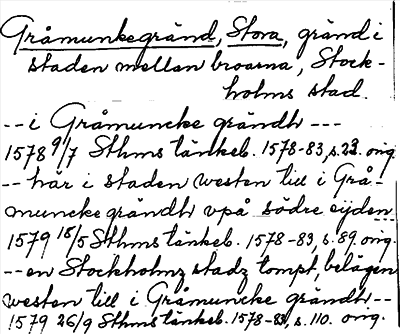 Gråmunkegränd, Stora, gränd i
staden mellan broarna, Stock-
holms stad.
-- i Gråmuncke grändh ---
1578 9/7 Sthms tänkeb. 1578-83, s. 23. orig.
-- här i staden westen till i Grå-
muncke grändh vpå södre sijden --
1579 18/5 Sthms tänkeb. 1578-83, s. 89. orig.
-- en Stockholmz stadz tompt, belägen
westen till i Gråmuncke grändh --
1579 26/9 Sthms tänkeb. 1578-83, s. 110. orig.